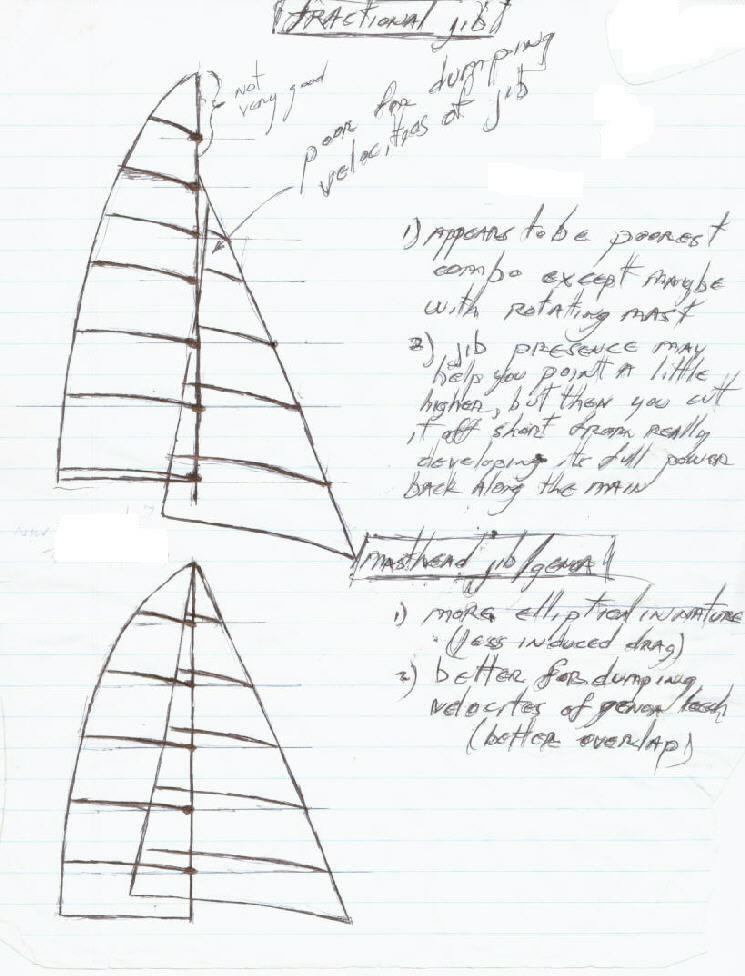 FRACTIONAL jib
not
very good
poor for dumping
velocities of jib
1) APPEARS to be poorest
combo except maybe
with rotating mast
2) jib presence may
help you point A little
higher, but then you cut
it off short from really
developing its full power
back along the main
MASTHEAD jib/genoa
1) more elliptical IN NATURE
(less induced drag)
2) better for dumping
velocites of genoa leech
(better overlap)